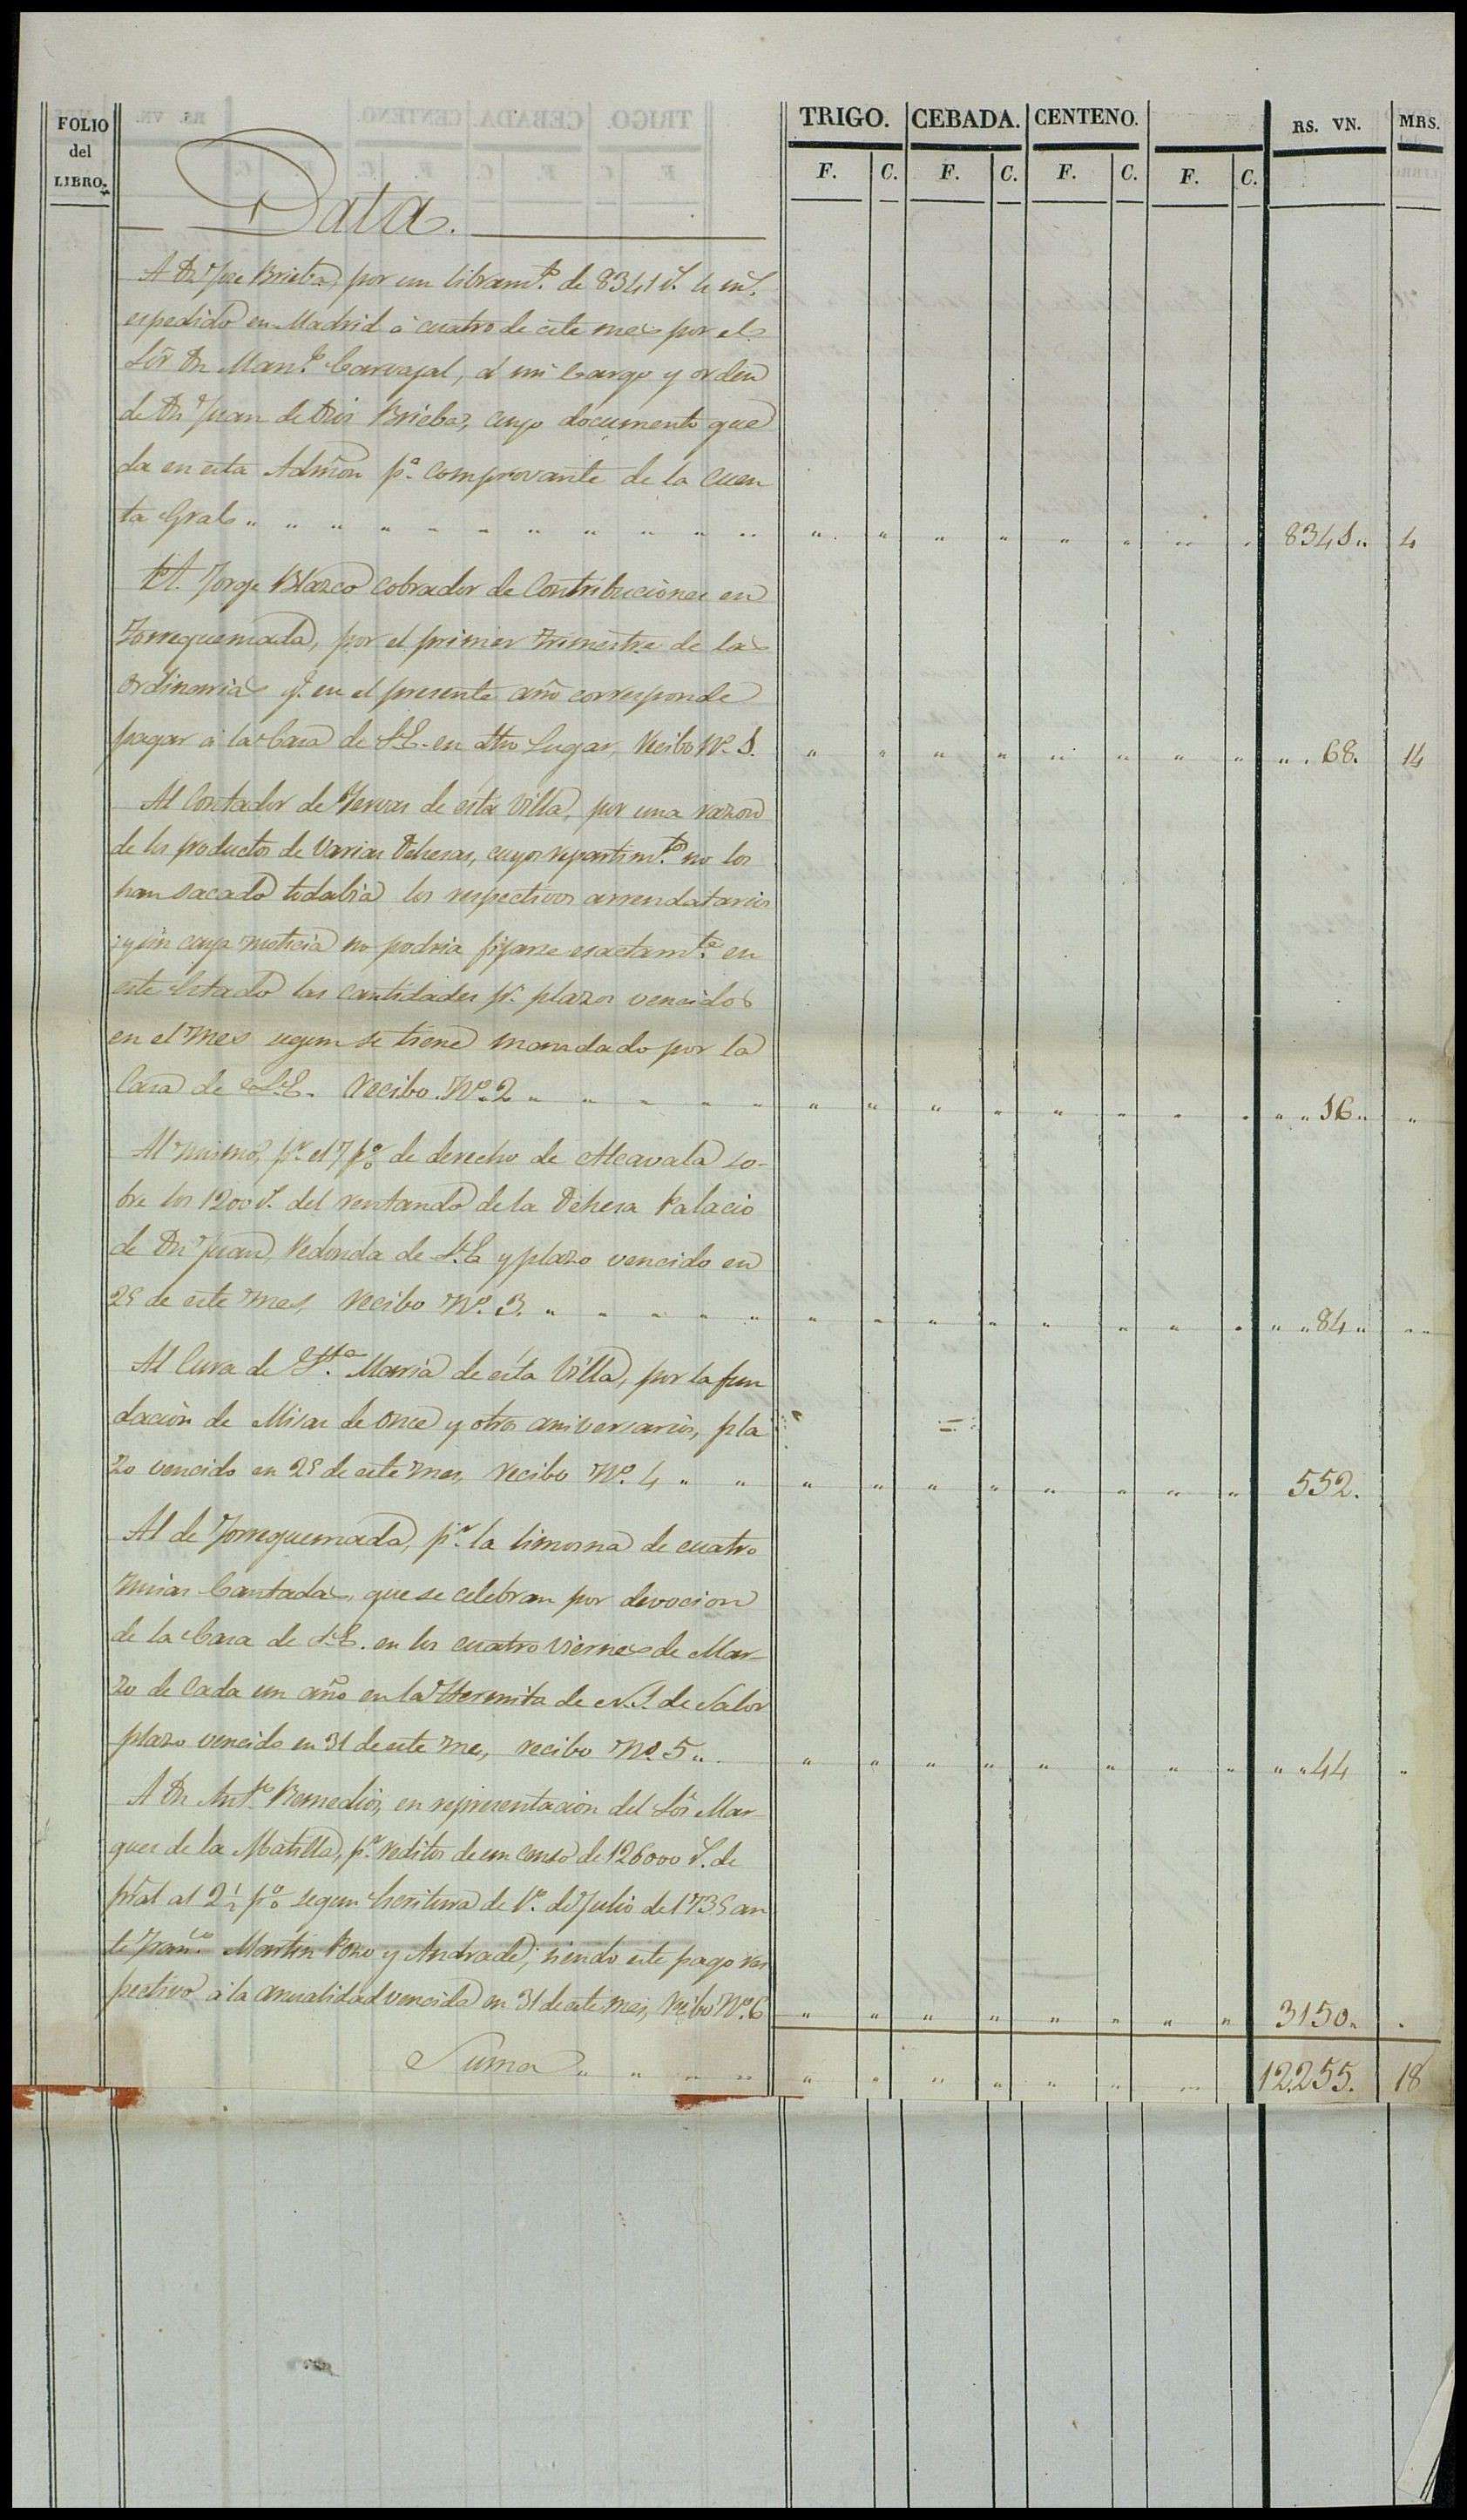 FOLIO del LIBRO. TRIGO. CEBADA. CENTENO. RS. VN. MRS.
F. C. F. C. F. C. F. C.
Data.
A Dn Jose Brieba, por un libramto. de 8341 r. 4 ms.
espedido en Madrid á cuatro de este mes por el
Sor Dn Manl. Carvajal, á mi cargo y orden
de Dn Juan de Dios Brieba, cuyo documento que
da en esta Admon pa. comprovante de la cuen
ta Gral 8341 4
A. Jorge Blazco cobrador de Contribuciones en
Torrequemada, por el primer trimestre de las
ordinarias q. en el presente año corresponde
pagar á la Casa de S.E. en dho Lugar, Recibo No. 1. 68. 14
Al Contador de Yervas de esta Villa, por una razon
de los productos de varias Dehesas, cuyos repartimtos. no los
han sacado todabia los respectivos arrendatarios
; y sin cuya noticia no podria fijarse esactamte. en
este Estado las cantidades pr. plazos vencidos
en el mes segun se tiene mandado por la
Casa de S.E. Recibo No. 2 16
Al mismo, pr. el 7 p% de derecho de Alcavala so-
bre los 1200 r. del rentando de la Dehesa Palacio
de Dn Juan, Redonda de S.E. y plazo vencido en
25 de este mes, Recibo No. 3. 84
Al Cura de Sta. Maria de esta Villa, por la fun
dacion de Misas de once y otros aniversarios, pla
zo vencido en 25 de este mes, Recibo No. 4 552.
Al de Torrequemada, pr. la limosna de cuatro
misas Cantadas, que se celebran por devocion
de la Casa de S.E. en los cuatro viernes de Mar-
zo de cada un año en la Hermita de N.S. de Salor
plazo vencido en 31 de este mes, recibo No. 5 44
A Dn Anto. Remedios, en representacion del Sor Mar-
ques de la Matilla, pr. reditos de un censo de 126000 r. de
pral al 2 1/2 p% segun Escritura de 1o. de Julio de 1735 an
te Franco. Martin Pozo y Andrade; siendo este pago res
pectivo á la anualidad vencida en 31 de este mes, Recibo No. 6 3150
Suma 12255. 18